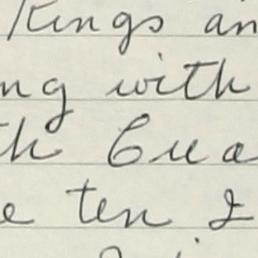 Kings an
ng with
th
e ten